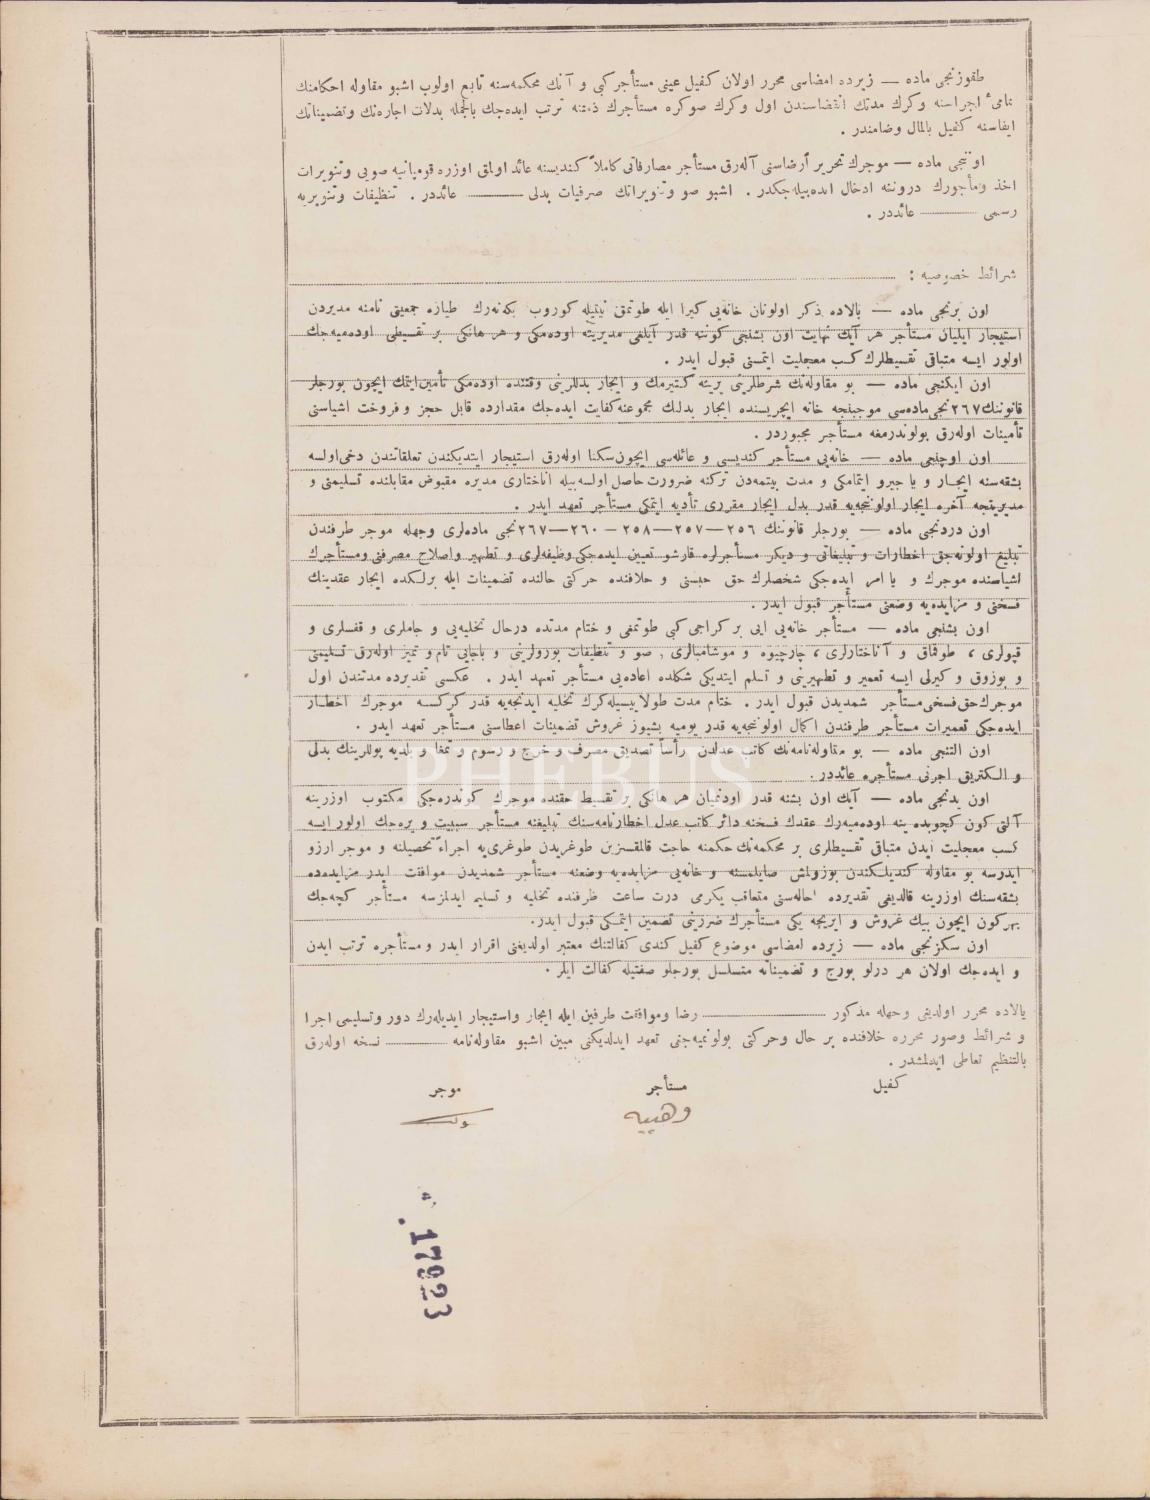 طقوزنجی ماده — زیرده امضاسی محرر اولان کفیل عینی مستأجر کبی و آنك محکمه‌سنه تابع اولوب اشبو مقاوله احکامنك
تمامیٔ اجراسنه وکرك مدتك انقضاسندن اول وکرك صوکره مستأجرك ذمتنه ترتب ایده‌جك بالجمله بدلات اجاره‌نك وتضمیناتك
ایفاسنه کفیل بالمال وضامندر .
اوننجی ماده — موجرك تحریر أرضاسنی آله‌رق مستأجر مصارفاتی کاملاً کندیسنه عائد اولمق اوزره قومپانیه صویی وتنویرات
اخذ ومأجورك دروننه ادخال ایده‌بیله‌جکدر . اشبو صو وتنویراتك صرفیات بدلی ـــــ عائددر . تنظیفات وتنویریه
رسمی ـــــ عائددر .
شرائط خصوصیه :
اون برنجی ماده — بالاده ذکر اولونان خانه‌یی کیرا ایله طوتمق نیتیله کوروب بکه‌نه‌رك طیاره جمعیتی نامنه مدیردن
استیجار ایلیان مستأجر هر آیك نهایت اون بشنجی کوننه قدر آیلغی مدیریته اوده‌مکی و هر هانکی بر تقسیطی اوده‌میه‌جك
اولور ایسه متباقی تقسیطلرك کسب معجلیت ایتمسنی قبول ایدر .
اون ایکنجی ماده — بو مقاوله‌نك شرطلرینی یرینه کتیرمك و ایجار بدللرینی وقتنده اوده‌مکی تأمین ایتمك ایچون بورجلر
قانوننك ٢٦٧نجی ماده‌سی موجبنجه خانه ایچریسنده ایجار بدلنك مجموعنه کفایت ایده‌جك مقدارده قابل حجز و فروخت اشیاسنی
تأمینات اوله‌رق بولوندرمغه مستأجر مجبوردر .
اون اوچنجی ماده — خانه‌یی مستأجر کندیسی و عائله‌سی ایچون سکنا اوله‌رق استیجار ایتدیکندن تعلقاتندن دخی اولسه
بشقه‌سنه ایجار و یا جیرو ایتمامکی و مدت بیتمه‌دن ترکنه ضرورت حاصل اولسه‌بیله اناختاری مدیره مقبوض مقابلنده تسلیمنی و
مدیریتجه آخره ایجار اولونجه‌یه قدر بدل ایجار مقرری تأدیه ایتمکی مستأجر تعهد ایدر .
اون دردنجی ماده — بورجلر قانوننك ٢٥٦—٢٥٧—٢٥٨—٢٦٠—٢٦٧نجی ماده‌لری وجهله موجر طرفندن
تبلیغ اولونه‌جق اخطارات و تبلیغاتی و دیکر مستأجرلره قارشو تعیین ایده‌جکی وظیفه‌لری و تطهیر واصلاح مصرفنی ومستأجرك
اشیاسنده موجرك و یا امر ایده‌جکی شخصلرك حق حبسنی و خلافنده حرکتی حالنده تضمینات ایله برلکده ایجار عقدینك
فسخنی و مزایده‌یه وضعنی مستأجر قبول ایدر .
اون بشنجی ماده — مستأجر خانه‌یی ایی بر کراجی کبی طوتمغی و ختام مدتده درحال تخلیه‌یی و جاملری و قفسلری و
قپولری ، طوقماق و آناختارلری ، چارچیوه و موشامبالری ، صو و تنظیفات بورولرینی و باجایی تام و تمیز اوله‌رق تسلیمنی
و بوزوق و کیرلی ایسه تعمیر و تطهیرینی و تسلم ایتدیکی شکلده اعاده‌یی مستأجر تعهد ایدر . عکسی تقدیرده مدتندن اول
موجرك حق فسخی مستأجر شمدیدن قبول ایدر . ختام مدت طولاییسیله کرك تخلیه ایدنجه‌یه قدر کرکسه موجرك اخطار
ایده‌جکی تعمیرات مستأجر طرفندن اکمال اولونجه‌یه قدر یومیه بشیوز غروش تضمینات اعطاسنی مستأجر تعهد ایدر .
اون التنجی ماده — بو مقاوله‌نامه‌نك کاتب عدلدن رأساً تصدیق مصرف و خرج و رسوم و تمغا و بلدیه پوللرینك بدلی
و الکتریق اجرتی مستأجره عائددر .
اون یدنجی ماده — آیك اون بشنه قدر اودنمیان هر هانکی بر تقسیط حقنده موجرك کوندره‌جکی مکتوب اوزرینه
آلتی کون کچوبده ینه اوده‌میه‌رك عقدك فسخنه دائر کاتب عدل اخطارنامه‌سنك تبلیغنه مستأجر سببیت ویره‌جك اولور ایسه
کسب معجلیت ایدن متباقی تقسیطلری بر محکمه‌نك حکمنه حاجت قالمقسزین طوغریدن طوغری‌یه اجراءً تحصیلنه و موجر ارزو
ایدرسه بو مقاوله کندیلکندن بوزولمش صایلمسنه و خانه‌یی مزایده‌یه وضعنه مستأجر شمدیدن موافقت ایدر مزایده‌ده
بشقه‌سنك اوزرینه قالدیغی تقدیرده احاله‌سنی متعاقب یکرمی درت ساعت ظرفنده تخلیه و تسلیم ایدلمزسه مستأجر کچه‌جك
بهرکون ایچون بیك غروش و ایریجه یکی مستأجرك ضررینی تضمین ایتمکی قبول ایدر.
اون سکزنجی ماده — زیرده امضاسی موضوع کفیل کندی کفالتنك معتبر اولدیغنی اقرار ایدر ومستأجره ترتب ایدن
و ایده‌جك اولان هر درلو بورج و تضمیناته متسلسل بورجلو صفتیله کفالت ایلر .
بالاده محرر اولدیغی وجهله مذکور ـــــ رضا وموافقت طرفین ایله ایجار واستیجار ایدیله‌رك دور وتسلیمی اجرا
و شرائط وصور محرره خلافنده بر حال وحرکتی بولونمیه‌جغی تعهد ایدلدیکنی مبین اشبو مقاوله‌نامه ـــــ نسخه اوله‌رق
بالتنظیم تعاطی ایدلمشدر .
کفیل مستأجر موجر
وهبیه
17923
PHEBUS